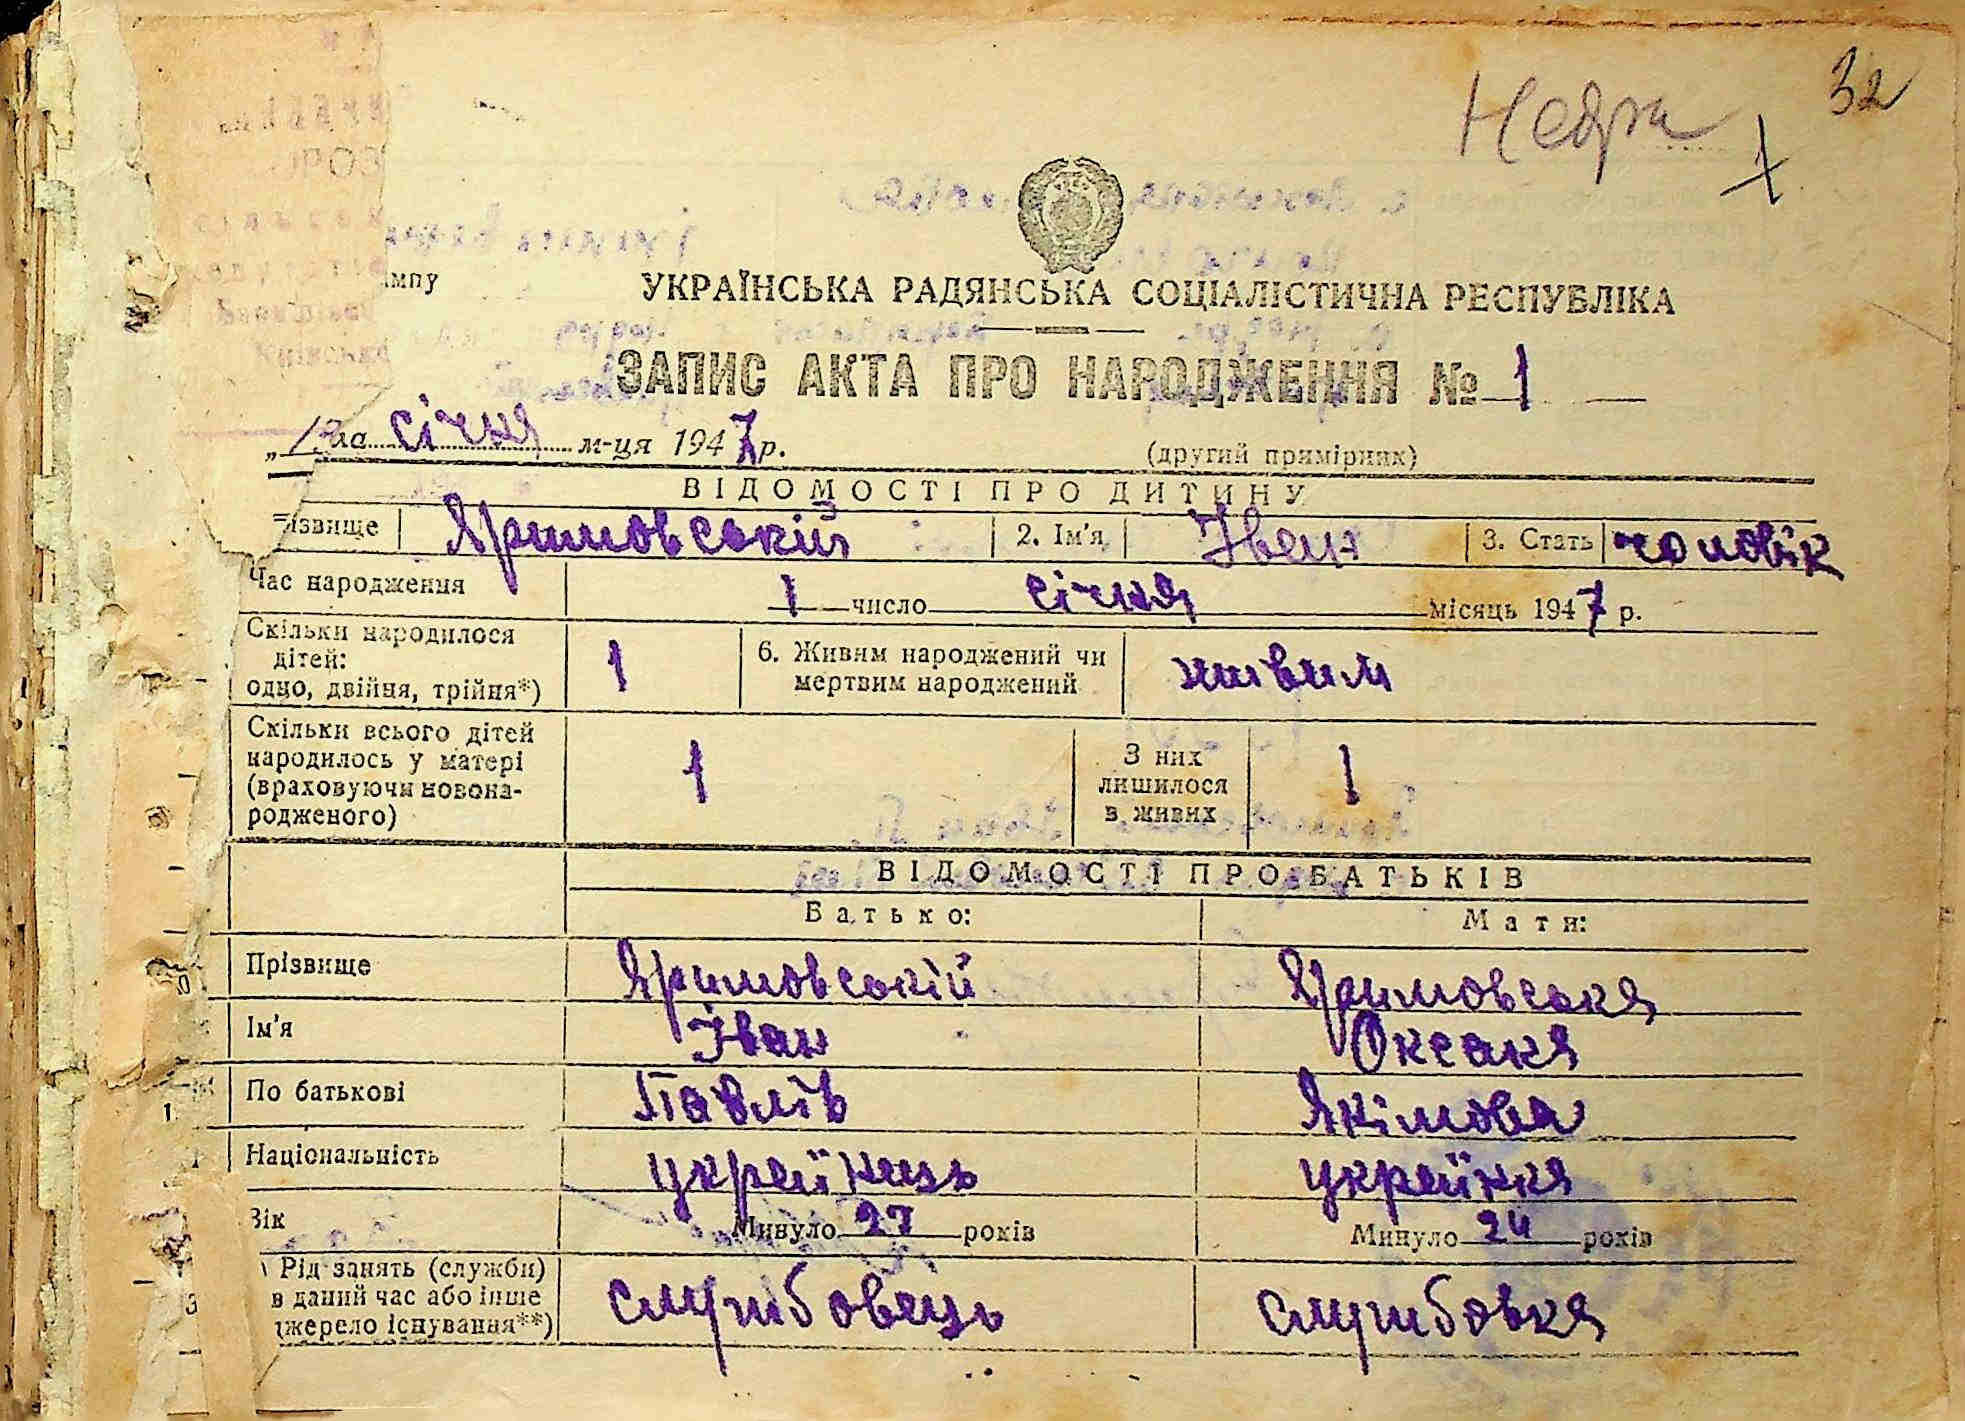 32
Недра
ПРОЗ
ампу
УКРАЇНСЬКА РАДЯНСЬКА СОЦІАЛІСТИЧНА РЕСПУБЛІКА
ЗАПИС АКТА ПРО НАРОДЖЕННЯ № 1
січня м-ця 1947 р.
(другий примірник)
ВІДОМОСТІ ПРО ДИТИНУ
різвище Яримовський 2. Ім'я Іван 3. Стать чоловік
Час народження 1 число січня місяць 1947 р.
Скільки народилося дітей: одно, двійня, трійня*) 1 6. Живим народжений чи мертвим народжений живим
Скільки всього дітей народилось у матері (враховуючи новонародженого) 1 З них лишилося в живих 1
ВІДОМОСТІ ПРО БАТЬКІВ
Батько: Мати:
Прізвище Яримовській Яримовська
Ім'я Іван Оксана
По батькові Павлів Якімова
Національність українць українка
Вік Минуло 27 років Минуло 24 років
Рід занять (служби) в даний час або інше джерело існування**) службовець службовка